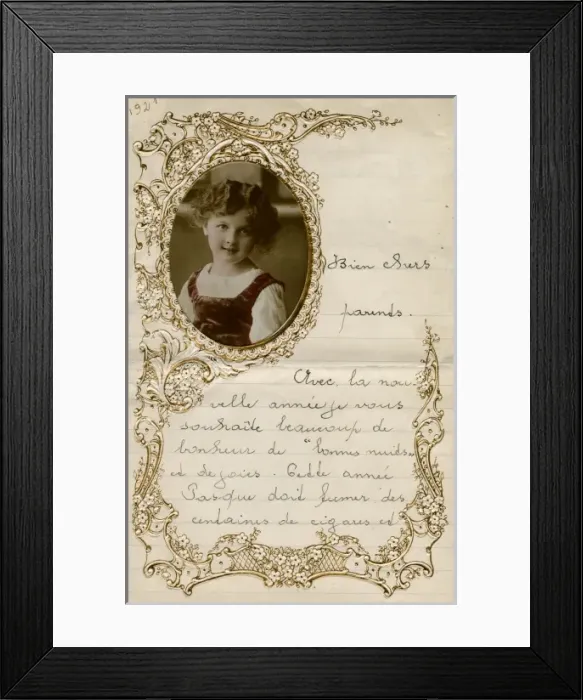 1921
Bien chers
parents.
Avec, la nou-
velle année je vous
souhaite beaucoup de
bonheur de "bonnes nuits"
et de joies. Cette année
Pasque doit fumer des
centaines de cigares et